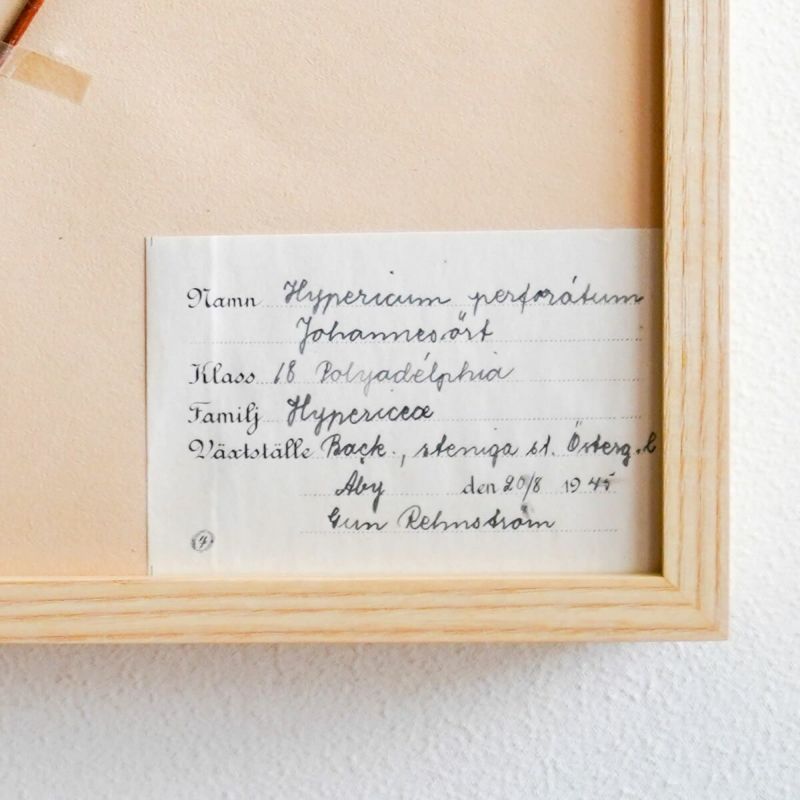 Namn Hypericum perforátum
Johannesört
Klass 18 Polyadélphia
Familj Hypericeæ
Växtställe Back., steniga st. Österg.l
Åby den 20/8 1945
Gun Rehnström
4